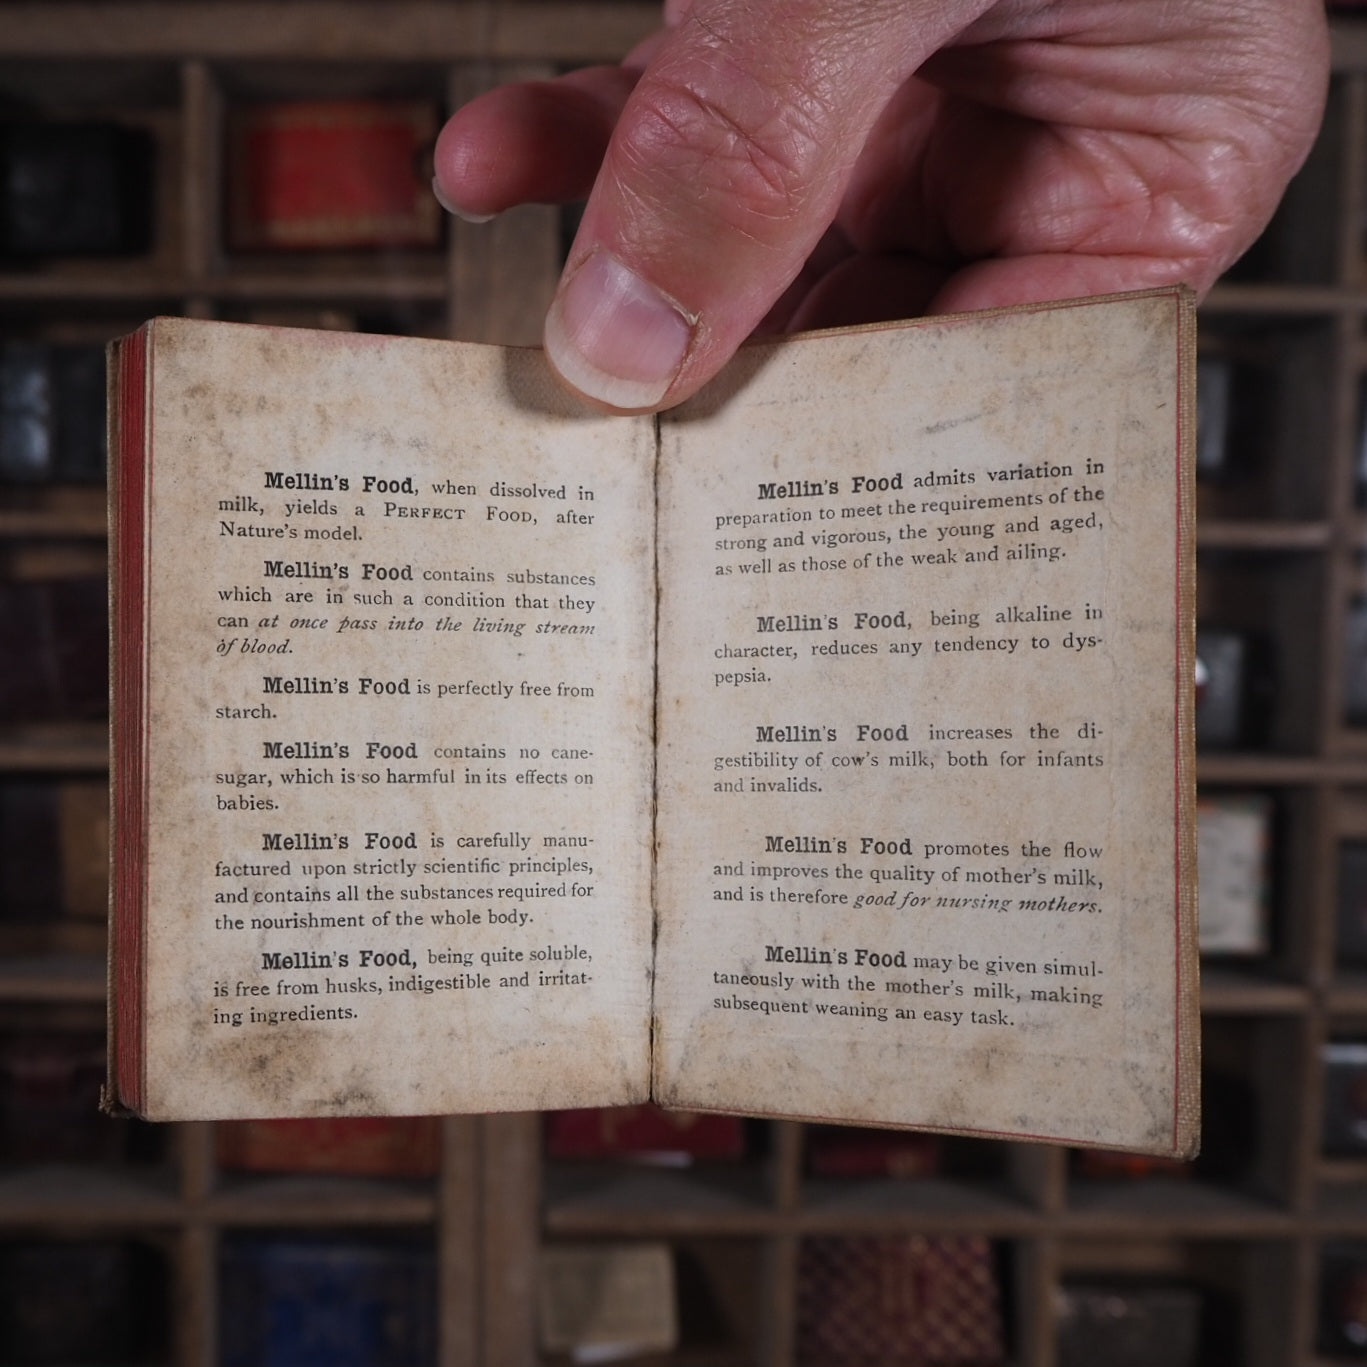 Mellin's Food, when dissolved in
milk, yields a PERFECT FOOD, after
Nature's model.
Mellin's Food contains substances
which are in such a condition that they
can at once pass into the living stream
of blood.
Mellin's Food is perfectly free from
starch.
Mellin's Food contains no cane-
sugar, which is so harmful in its effects on
babies.
Mellin's Food is carefully manu-
factured upon strictly scientific principles,
and contains all the substances required for
the nourishment of the whole body.
Mellin's Food, being quite soluble,
is free from husks, indigestible and irritat-
ing ingredients.
Mellin's Food admits variation in
preparation to meet the requirements of the
strong and vigorous, the young and aged,
as well as those of the weak and ailing.
Mellin's Food, being alkaline in
character, reduces any tendency to dys-
pepsia.
Mellin's Food increases the di-
gestibility of cow's milk, both for infants
and invalids.
Mellin's Food promotes the flow
and improves the quality of mother's milk,
and is therefore good for nursing mothers.
Mellin's Food may be given simul-
taneously with the mother's milk, making
subsequent weaning an easy task.